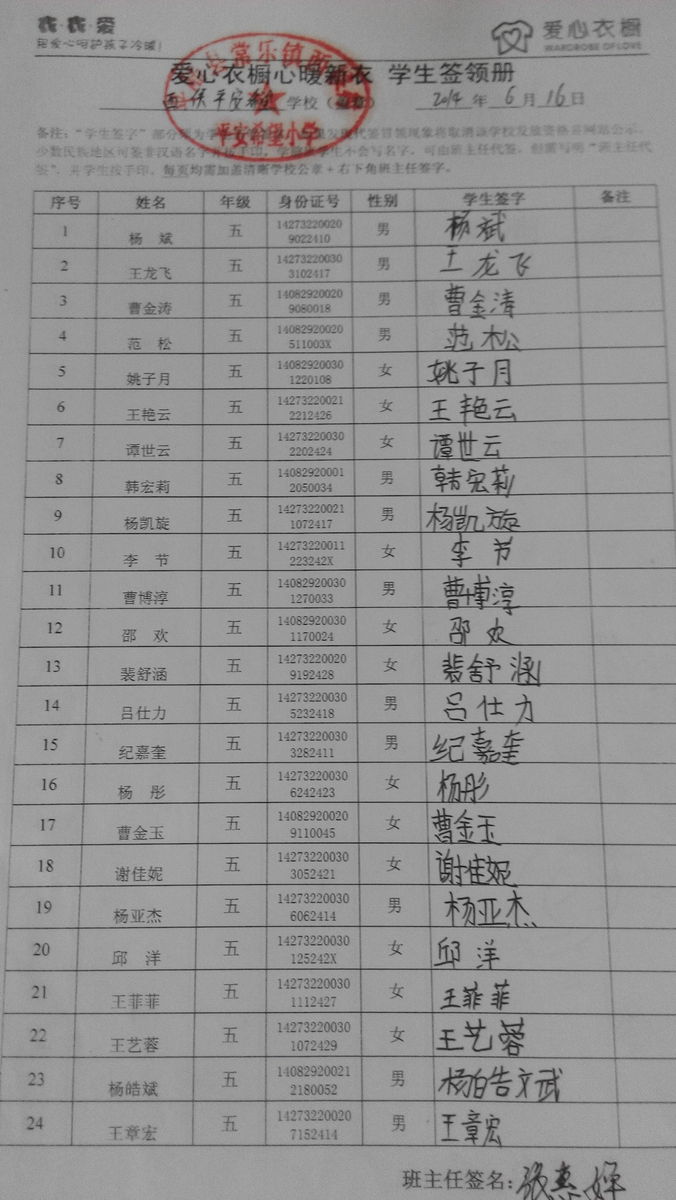 我·我·爱
用爱心呵护孩子冷暖!
爱心衣橱
WARDROBE OF LOVE
爱心衣橱心暖新衣 学生签领册
平安希望 学校 2014 年 6 月 16 日
常乐镇
平安希望小学
备注:“学生签字”部分
少数民族地区可签非汉语名字并按手印,
签”,并学生按手印。每页均需加盖清晰学校公章+右下角班主任签字。
序号 姓名 年级 身份证号 性别 学生签字 备注
1 杨 斌 五 14273220020 9022410 男 杨斌
2 王龙飞 五 14273220030 3102417 男 王龙飞
3 曹金涛 五 14082920020 9080018 男 曹金涛
4 范 松 五 14082920020 511003X 男 范松
5 姚子月 五 14082920030 1220108 女 姚子月
6 王艳云 五 14273220021 2212426 女 王艳云
7 谭世云 五 14273220030 2202424 女 谭世云
8 韩宏莉 五 14082920001 2050034 男 韩宏莉
9 杨凯旋 五 14273220021 1072417 男 杨凯旋
10 李 节 五 14273220011 223242X 女 李节
11 曹博淳 五 14082920030 1270033 男 曹博淳
12 邵 欢 五 14082920030 1170024 女 邵欢
13 裴舒涵 五 14273220020 9192428 女 裴舒涵
14 吕仕力 五 14273220030 5232418 男 吕仕力
15 纪嘉奎 五 14273220030 3282411 男 纪嘉奎
16 杨 彤 五 14273220030 6242423 女 杨彤
17 曹金玉 五 14082920020 9110045 女 曹金玉
18 谢佳妮 五 14273220030 3052421 女 谢佳妮
19 杨亚杰 五 14273220030 6062414 男 杨亚杰
20 邱 洋 五 14273220030 125242X 女 邱洋
21 王菲菲 五 14273220030 1112427 女 王菲菲
22 王艺蓉 五 14273220030 1072429 女 王艺蓉
23 杨皓斌 五 14082920021 2180052 男 杨皓斌
24 王章宏 五 14273220020 7152414 男 王章宏
班主任签名:张